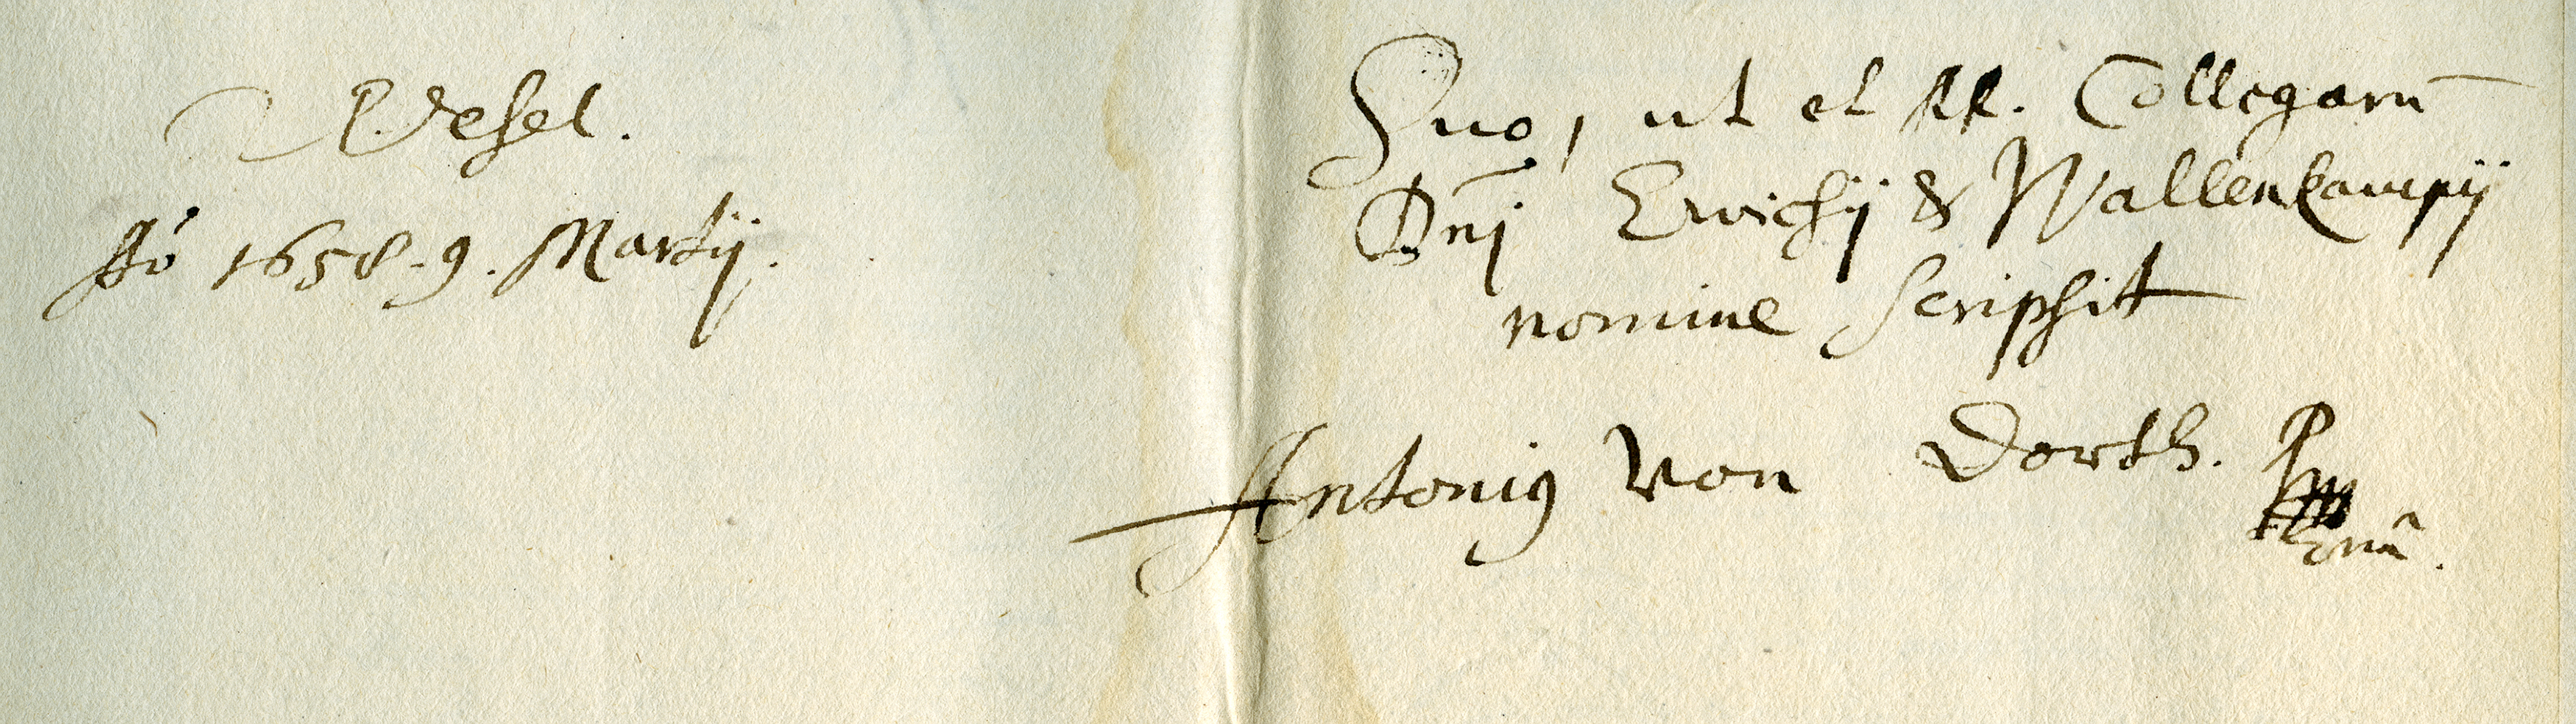 Wesel.
Aō 1658. 9. Martij.
Suo, ut et RR. Collegarū
Dnj Ewichij & Wallenkampij
nomine scripsit
Antonius von Dorth.